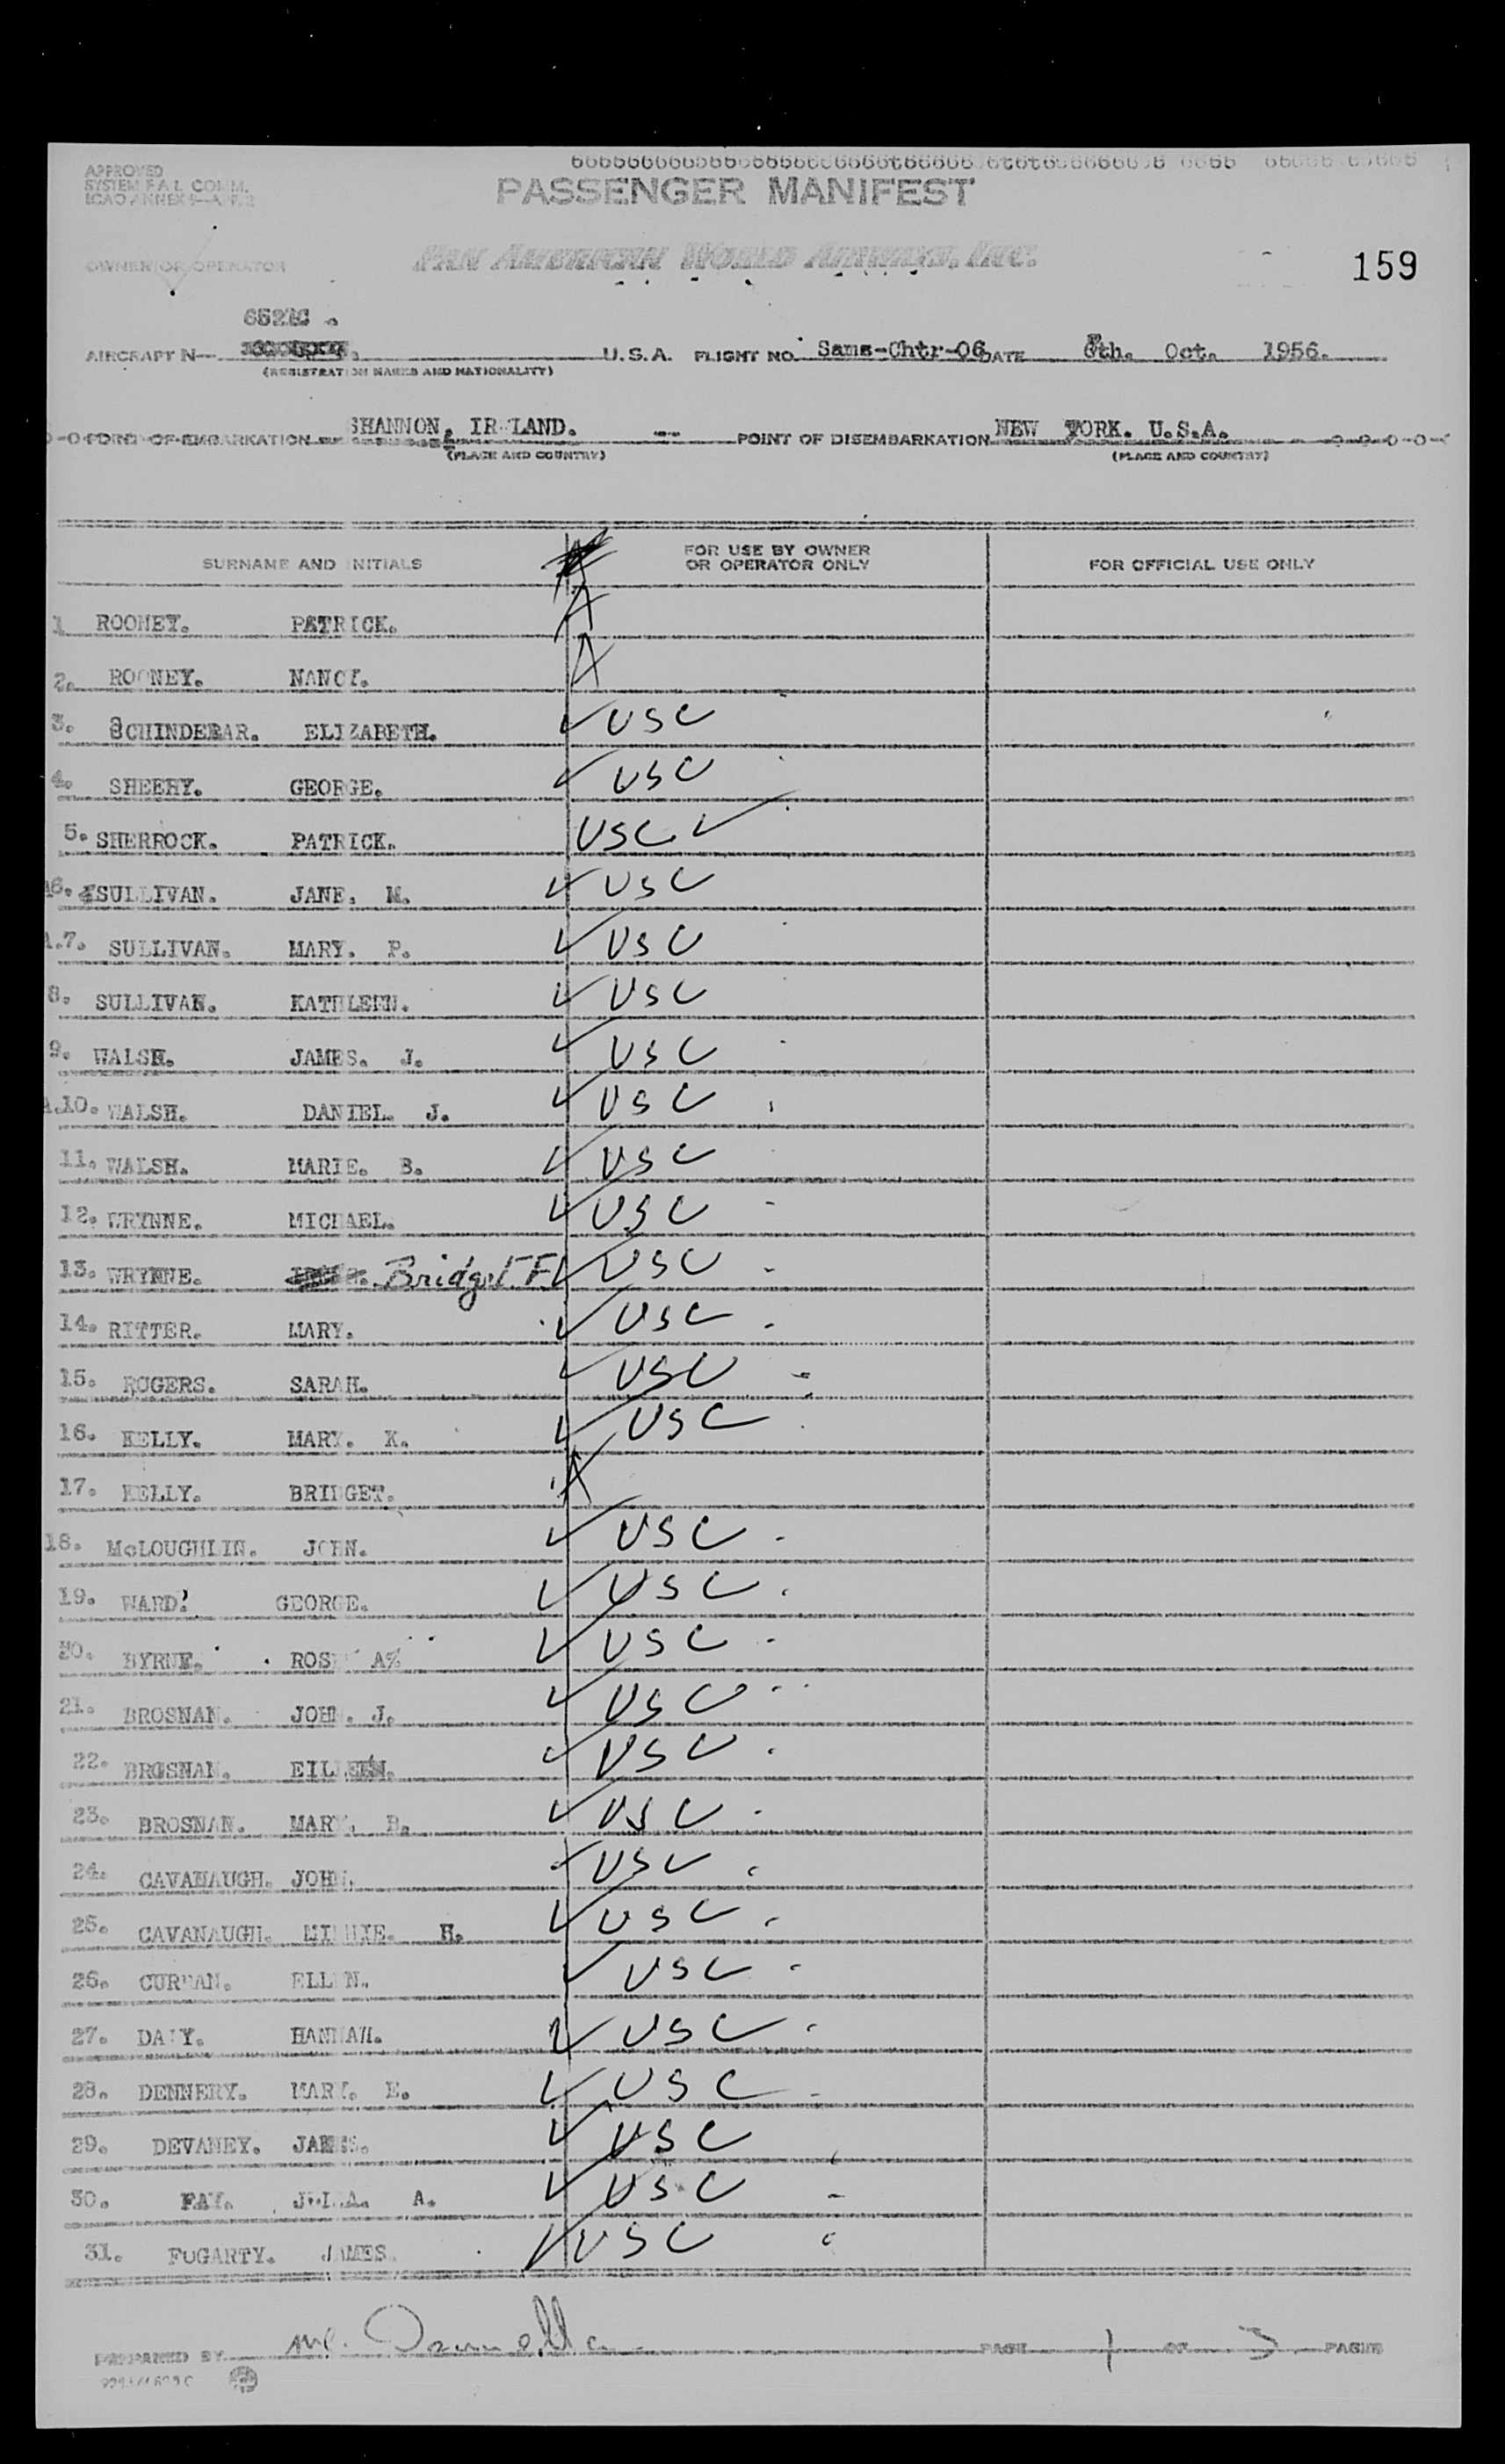 APPROVED
SYSTEM F.A.L. COMM.
ICAO ANNEX 9—
PASSENGER MANIFEST
OWNER OR OPERATOR
PAN AMERICAN WORLD AIRWAYS, INC.
159
AIRCRAFT N— U.S.A. FLIGHT NO. Sams-Chtr-06 DATE Oct. 1956.
(REGISTRATION MARKS AND NATIONALITY)
POINT OF EMBARKATION SHANNON, IR LAND. POINT OF DISEMBARKATION NEW YORK. U.S.A. -0-0-0-0-
(PLACE AND COUNTRY) (PLACE AND COUNTRY)
SURNAME AND INITIALS FOR USE BY OWNER OR OPERATOR ONLY FOR OFFICIAL USE ONLY
1 ROONEY. PATRICK. A
2. ROONEY. NANCY. A
3. SCHINDEBAR. ELIZABETH. ✓ USC
4. SHEEHY. GEORGE. ✓ USC
5. SHERROCK. PATRICK. USC ✓
6. SULLIVAN. JANE. M. ✓ USC
7. SULLIVAN. MARY. P. ✓ USC
8. SULLIVAN. KATHLEEN. ✓ USC
9. WALSH. JAMES. J. ✓ USC
10. WALSH. DANIEL. J. ✓ USC
11. WALSH. MARIE. B. ✓ USC
12. WRYNNE. MICHAEL. ✓ USC
13. WRYNNE. Bridget F. ✓ USC
14. RITTER. MARY. ✓ USC
15. ROGERS. SARAH. ✓ USC
16. KELLY. MARY. K. ✓ USC
17. KELLY. BRIDGET. A
18. McLOUGHLIN. JOHN. ✓ USC
19. WARD. GEORGE. ✓ USC
20. BYRNE. ROSE A% ✓ USC
21. BROSNAN. JOHN. J. ✓ USC
22. BROSNAN. EILEEN. ✓ USC
23. BROSNAN. MARY. B. ✓ USC
24. CAVANAUGH. JOHN. ✓ USC
25. CAVANAUGH. MINNIE. H. ✓ USC
26. CURRAN. ELLEN. ✓ USC
27. DALY. HANNAH. ✓ USC
28. DENNERY. MARY. E. ✓ USC
29. DEVANEY. JAMES. ✓ USC
30. FAY. JULIA. A. ✓ USC
31. FOGARTY. JAMES. ✓ USC
PREPARED BY PAGE 1 OF 3 PAGES